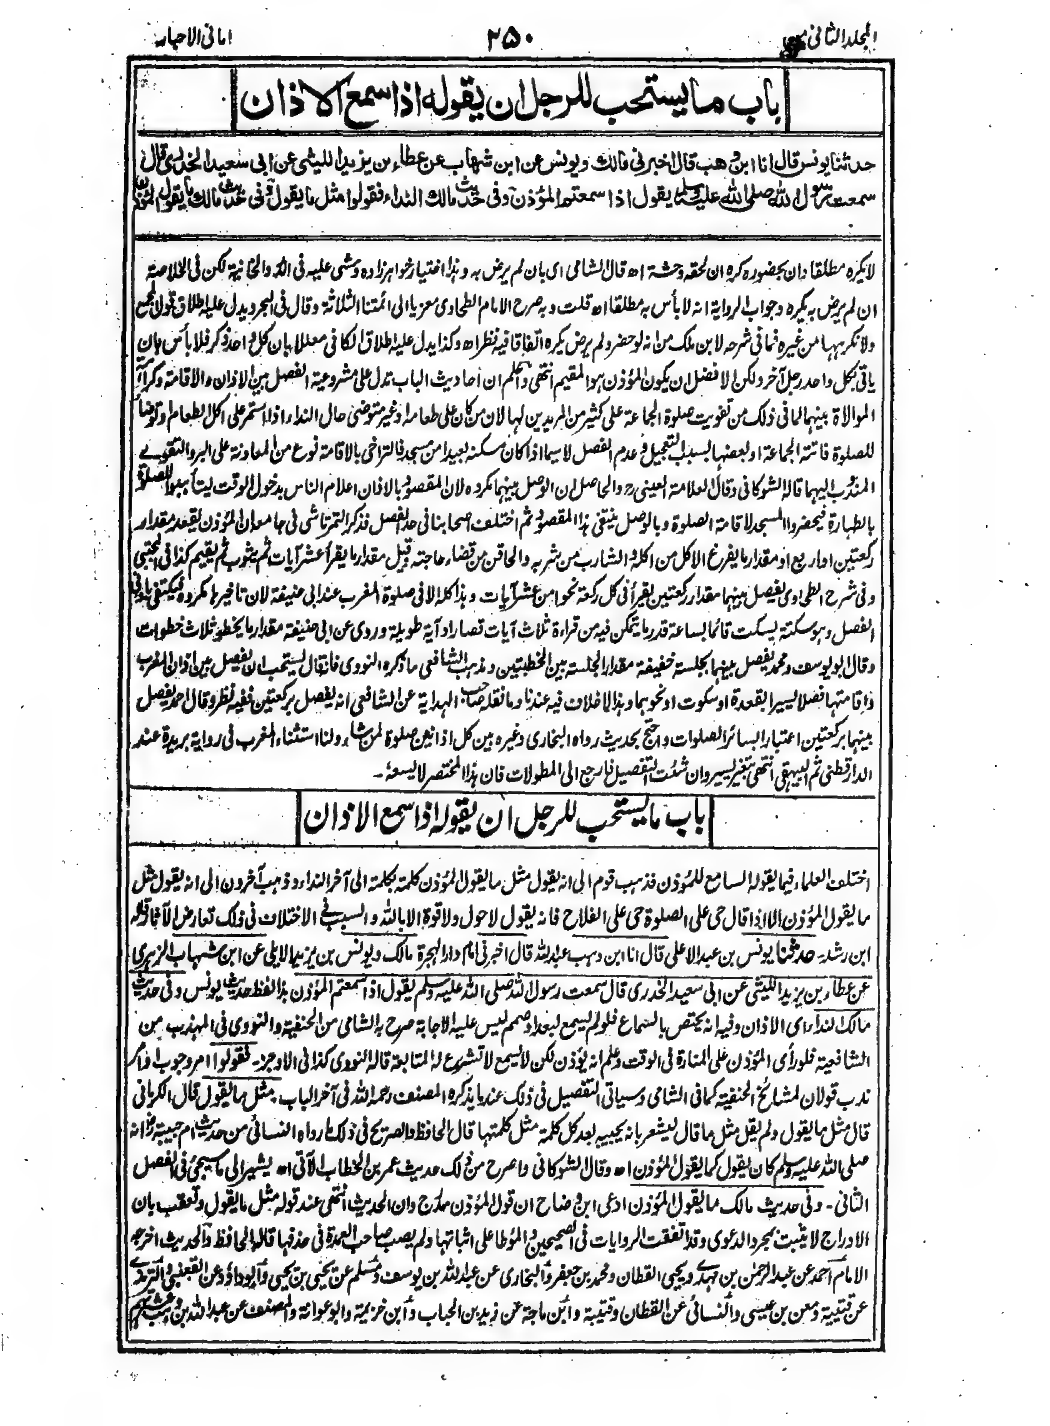 المجلد الثانى
٢٥٠
امانى الاحبار
باب ما يستحب للرجل ان يقوله اذا سمع الاذان
حدثنا يونس قال انا ابن وهب قال اخبرنى مالك ويونس عن ابن شهاب عن عطاء بن يزيد الليثى عن ابى سعيد الخدرى قال
سمعت رسول الله صلى الله عليه وسلم يقول اذا سمعتم المؤذن وفى حديث مالك النداء فقولوا مثل ما يقول وفى حديث مالك ما يقول المؤذن
لا يكره مطلقا وان بحضوره كره ان لحقه وحشة اه قال الشامى اى بان لم يرض به وهذا اختيار خواهر زاده ومشى عليه فى الدر والخانية لكن فى الخلاصة
ان لم يرض به يكره وجواب الرواية انه لا بأس به مطلقا اه قلت وبه صرح الامام الطحاوى معزيا الى ائمتنا الثلاثة وقال فى البحر ويدل عليه اطلاق قول المجمع
ولا نكرهها من غيره فما فى شرحه لابن ملك من انه لو حضر ولم يرض يكره اتفاقا فيه نظر اه وكذا يدل عليه اطلاق الكافى معللا بان كل واحد ذكر فلا بأس بان
يأتى بكل واحد رجل آخر ولكن الافضل ان يكون المؤذن هو المقيم انتهى واعلم ان احاديث الباب تدل على مشروعية الفصل بين الاذان والاقامة وكراهة
الموالاة بينهما لما فى ذلك من تفويت صلوة الجماعة على كثير من المريدين لها لان من كان على طعامه او غير متوضئ حال النداء اذا استمر على اكل الطعام او توضأ
للصلوة فاتته الجماعة او بعضها بسبب التعجيل وعدم الفصل لا سيما اذا كان مسكنه بعيدا من مسجد فالتراخى بالاقامة نوع من المعاونة على البر والتقوى
المندوب اليهما قاله الشوكانى وقال العلامة العينى والحاصل ان الوصل بينهما مكروه لان المقصود بالاذان اعلام الناس بدخول الوقت ليتأهبوا للصلوة
بالطهارة فيحضروا المسجد لاقامة الصلوة وبالوصل ينتفى هذا المقصود ثم اختلف اصحابنا فى حد الفصل فذكر التمرتاشى فى جامعه ان المؤذن يقعد مقدار
ركعتين او اربع او مقدار ما يفرغ الآكل من اكله والشارب من شربه والحاقن من قضاء حاجته وقيل مقدار ما يقرأ عشر آيات ثم يثوب ثم يقيم كذا فى المجتبى
وفى شرح الطحاوى يفصل بينهما مقدار ركعتين يقرأ فى كل ركعة نحوا من عشر آيات وهذا كله الا فى صلوة المغرب عند ابى حنيفة لان تاخيرها مكروه فيكتفى بادنى
الفصل وهو سكتة يسكت قائما ساعة قدر ما يتمكن فيه من قراءة ثلاث آيات قصار او آية طويلة وروى عن ابى حنيفة مقدار ما يخطو ثلاث خطوات
وقال ابو يوسف ومحمد يفصل بينهما بجلسة خفيفة مقدار الجلسة بين الخطبتين ومذهب الشافعى ما ذكره النووى فانه قال يستحب ان يفصل بين اذان المغرب
واقامتها فصلا يسيرا بقعدة او سكوت او نحوهما وهذا لا خلاف فيه عندنا وما نقله صاحب الهداية عن الشافعى انه يفصل بركعتين ففيه نظر وقال احمد يفصل
بينهما بركعتين اعتبارا بسائر الصلوات واحتج بحديث رواه البخارى وغيره بين كل اذانين صلوة لمن شاء ولنا استثناء المغرب فى رواية بريدة عند
الدارقطنى ثم البيهقى انتهى بتغير يسير وان شئت التفصيل فارجع الى المطولات فان هذا المختصر لا يسعه۔
باب ما يستحب للرجل ان يقوله اذا سمع الاذان
اختلف العلماء فيما يقوله السامع للمؤذن فذهب قوم الى انه يقول مثل ما يقول المؤذن كلمة بكلمة الى آخر النداء وذهب آخرون الى انه يقول مثل
ما يقول المؤذن الا اذا قال حى على الصلوة حى على الفلاح فانه يقول لا حول ولا قوة الا بالله والسبب فى الاختلاف فى ذلك تعارض الآثار قاله
ابن رشد۔ حدثنا يونس بن عبد الاعلى قال انا ابن وهب عبد الله قال اخبرنى امام دار الهجرة مالك ويونس بن يزيد الايلى عن ابن شهاب الزهرى
عن عطاء بن يزيد الليثى عن ابى سعيد الخدرى قال سمعت رسول الله صلى الله عليه وسلم يقول اذا سمعتم المؤذن هذا لفظ حديث يونس وفى حديث
مالك النداء اى الاذان وفيه انه يختص بالسماع فلو لم يسمع لبعد او صمم ليس عليه الاجابة صرح به الشامى من الحنفية والنووى فى المهذب من
الشافعية فلو رأى المؤذن على المنارة فى الوقت وعلم انه يؤذن لكن لا يسمع لا تشرع له المتابعة قاله النووى كذا فى الاوجز۔ فقولوا امر وجوب او امر
ندب قولان لمشائخ الحنفية كما فى الشامى وسياتى التفصيل فى ذلك عند ما يذكره المصنف رحمه الله فى آخر الباب۔ مثل ما يقول قال الكرمانى
قال مثل ما يقول ولم يقل مثل ما قال ليشعر بانه يجيبه بعد كل كلمة مثل كلمتها قال الحافظ والصريح فى ذلك ما رواه النسائى من حديث ام حبيبة انه
صلى الله عليه وسلم كان يقول كما يقول المؤذن اه وقال الشوكانى واصرح من ذلك حديث عمر بن الخطاب الآتى اه يشير الى ما سيجئ فى الفصل
الثانى۔ وفى حديث مالك ما يقول المؤذن ادعى ابن وضاح ان قول المؤذن مدرج وان الحديث انتهى عند قوله مثل ما يقول وتعقب بان
الادراج لا يثبت بمجرد الدعوى وقد اتفقت الروايات فى الصحيحين والموطا على اثباتها ولم يصب صاحب العمدة فى حذفها قاله الحافظ والحديث اخرجه
الامام احمد عن عبد الرحمن بن مهدى ويحيى القطان ومحمد بن جعفر والبخارى عن عبد الله بن يوسف ومسلم عن يحيى بن يحيى وابو داؤد عن القعنبى والترمذى
عن قتيبة ومعن بن عيسى والنسائى عن القطان وقتيبة وابن ماجة عن زيد بن الحباب وابن خزيمة وابو عوانة والمصنف عن عبد الله بن وهب